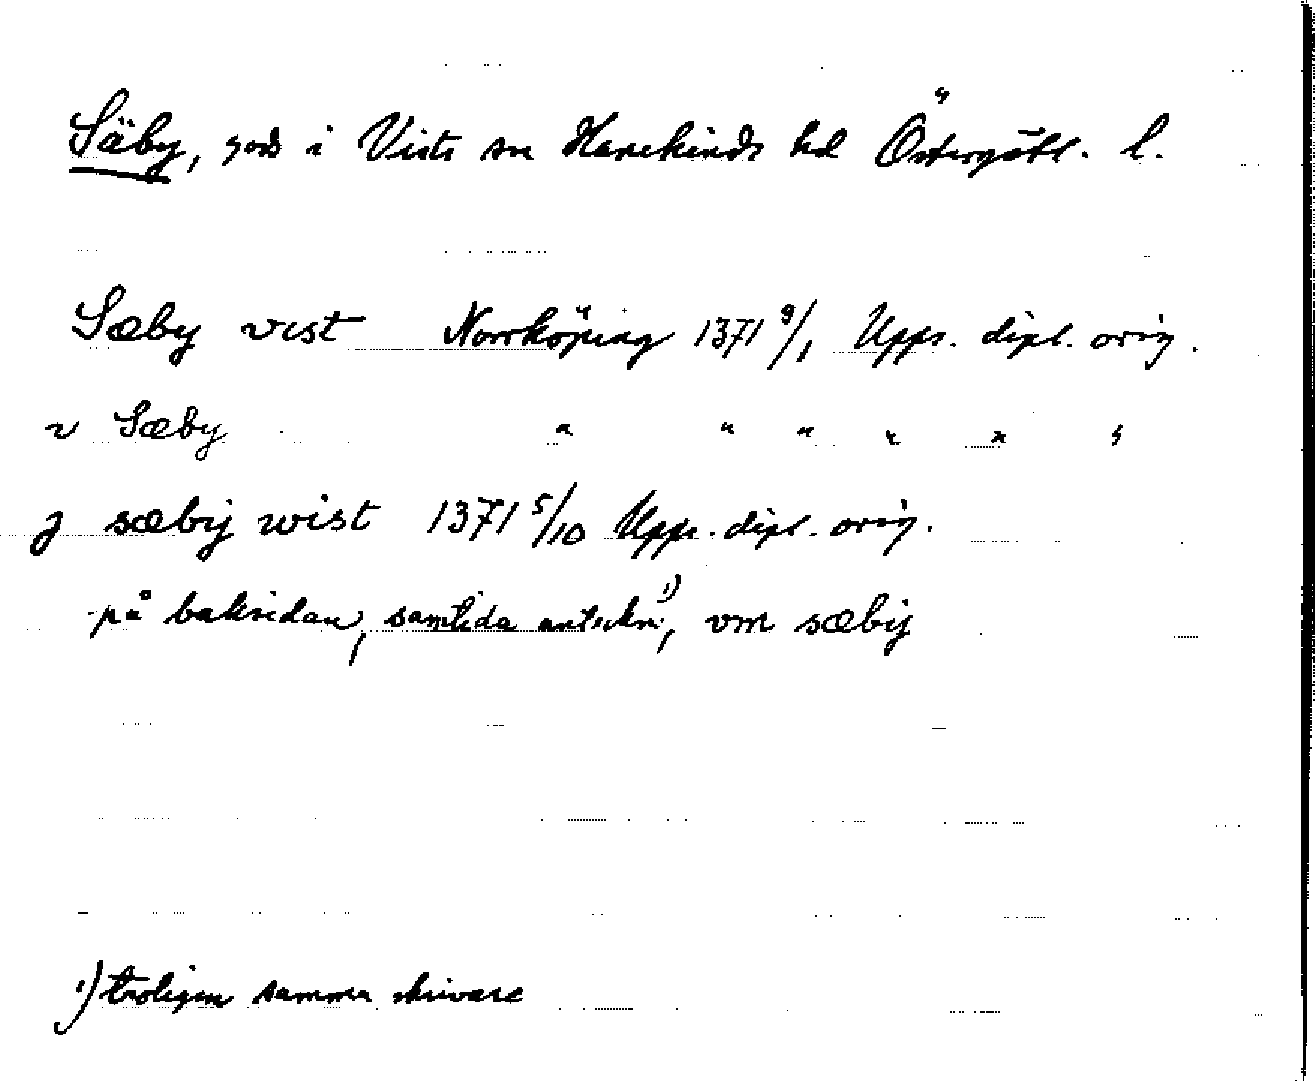 Säby, gods i Vists sn Hanekinds hd Östergötl. l.
Sæby vist Norrköping 1371 9/1 Upps. dipl. orig.
v Sæby " " " " " "
j sæbij wist 1371 5/10 Upps. dipl. orig.
på baksidan, samtida anteckn.¹⁾, vm sæbij
1) troligen samma skrivare